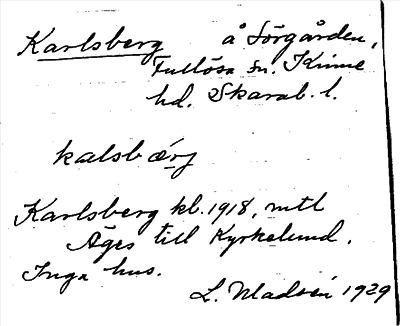 Karlsberg å Sörgården,
Fullösa sn. Kinne
hd. Skarab. l.
kalsbærj
Karlsberg kl. 1918, mtl
Äges till Kyrkelund.
Inga hus.
L. Madsén 1929